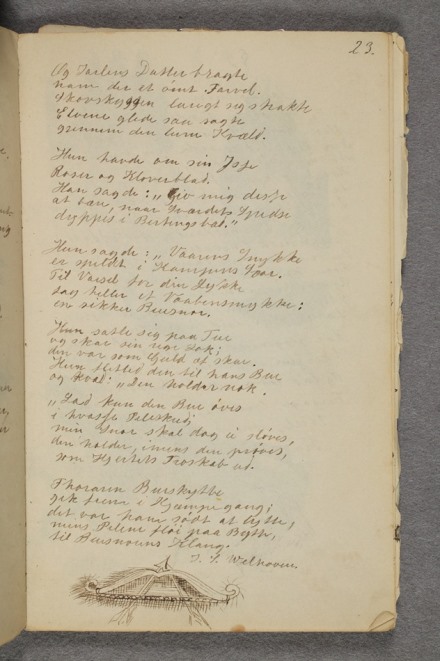 23.
Og Jarlens Datter bragte
ham der et ømt Farvel.
Skovskyggen langt sig strakte
Elvene glede saa sagte
gjennem den lune Kvæld.
Hun havde om sin Isse
Roser og Kløverblad.
Han sagde: „Giv mig disse
at bære, naar Sværdets Spidse
dyppes i Bersegs bad."
Hun sagde: „Vaarens Smykke
er spildt i Kampens Saar.
Til Varsel for din Lykke
tag heller et Vaabensmykke:
en sikker Buesnor.
Hun satte sig paa Tue
og skar sin rige Lok;
den var som Guld at skue.
Hun fletted den til hans Bue
og kvad: „Den holder nok.
„Lad kun den Bue øves
i hvasse Pileskud
min Snor skal dog ei sløves,
den holder, imens den prøves,
som Hjertets Troskab ud.
Thoraren Bueskytte
gik frem i Kjæmpegang;
det var ham sødt at lytte,
mens Pilene fløi paa Bytte,
til Buesnorens Klang.
J. S. Welhaven.